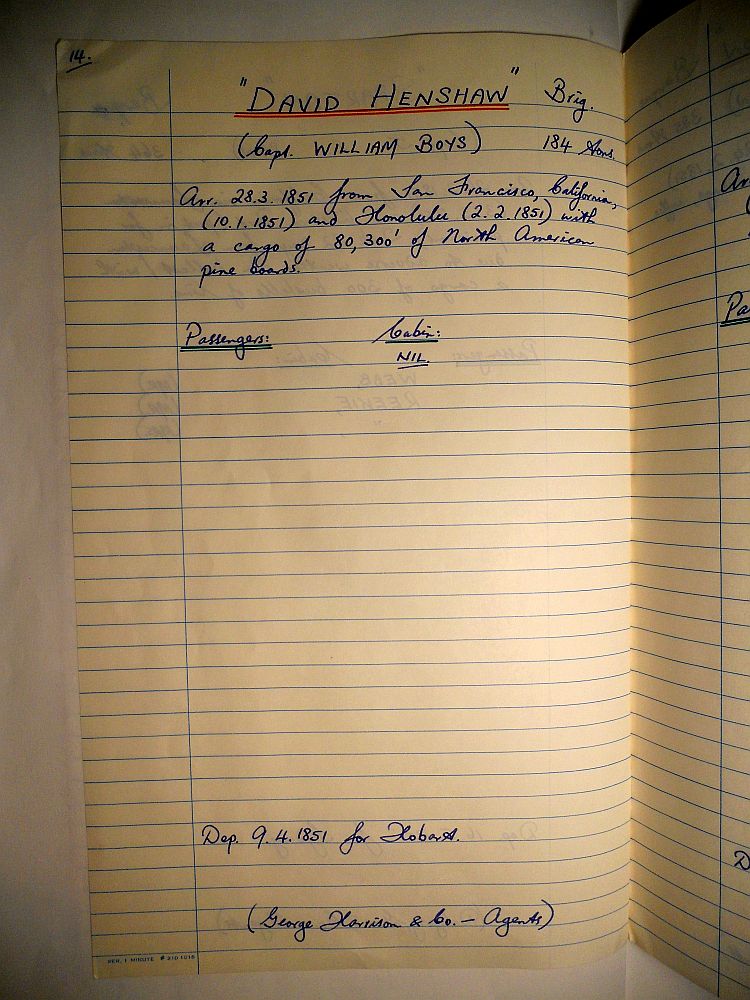 14.
"DAVID HENSHAW" Brig.
(Capt. WILLIAM BOYS) 184 tons.
Arr. 28.3.1851 from San Francisco, California,
(10.1.1851) and Honolulu (2.2.1851) with
a cargo of 80,300' of North American
pine boards.
Passengers: Cabin:
NIL.
Dep. 9.4.1851 for Hobart.
(George Harrison & Co. - Agents)